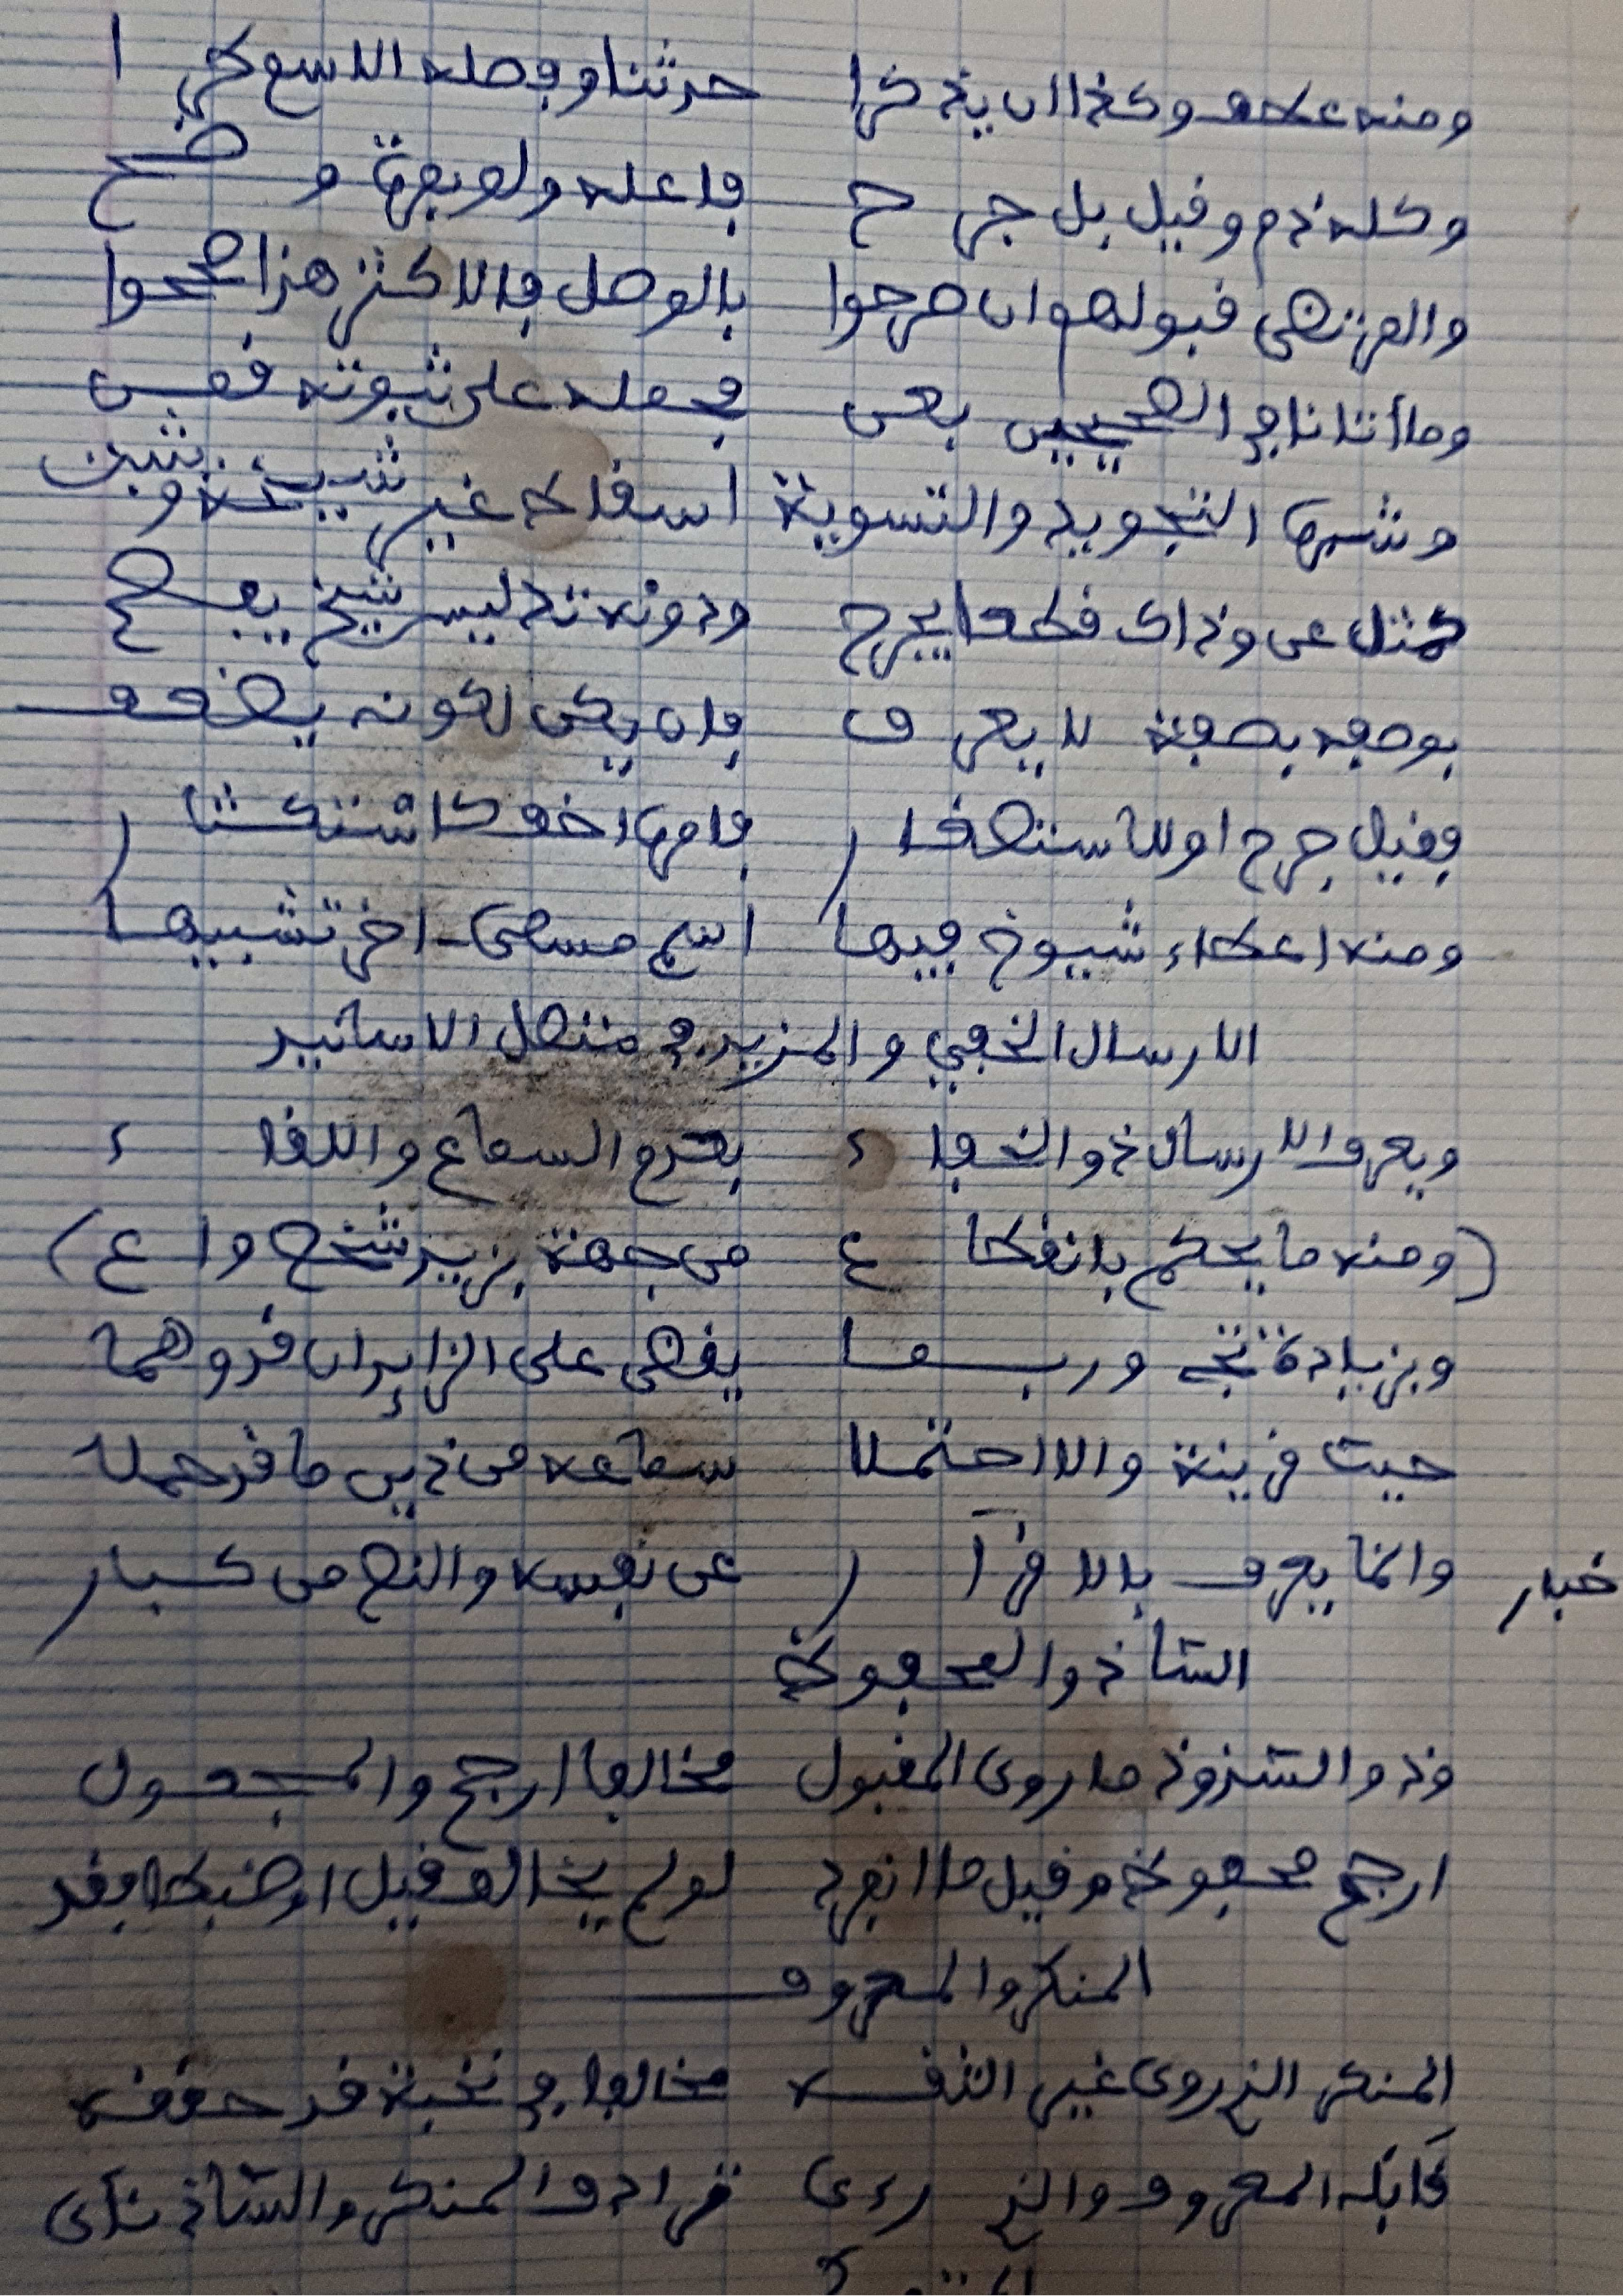 ومنه عطف وكذا ان يذكرا حدثنا وفصله الاسم طرا
وكله ذم وقيل بل جرح فاعله ولو بمرة وضح
والمرتضى قبولهم ان صرحوا بالوصل فالاكثر هذا صححوا
وما أتانا في الصحيحين بعن فحمله على ثبوته قمن
وشرها التجويد والتسوية اسقاط غير شيخه ويثبت
كمثل عن وذاك قطعا يجرح ودونه تدليس شيخ يفصح
بوصفه بصفة لا يعرف فان يكن لكونه يضعف
فقيل جرح او للاستصغار فامرها اخف كاستكثار
ومنه اعطاء شيوخ فيها اسم مسمى اخر تشبيها
الارسال الخفي والمزيد في متصل الاسانيد
ويعرف الارسال ذو الخفاء بعدم السماع واللقاء
(ومنه ما يحكم بانقطاع من جهة بزيد شخص واع)
وبزيادة تجي وربما يقضى على الزايد ان قد وهما
حيث قرينة والا احتملا سماعه من ذين ما قد حملا
وانما يعرف بالاقرآر عن نفسه والنص من كبار
خبار
الشاذ والمحفوظ
وذو الشذوذ ما روى المقبول مخالفا ارجح والمجعول
ارجح محفوظ وقيل ما انفرد لو لم يخالف قيل او ضبطا فقد
المنكر والمعروف
المنكر الذ روى غير الثقه مخالفا في نخبة قد حققه
قابله المعروف والذ رءى ترادف المنكر والشاذ نأى